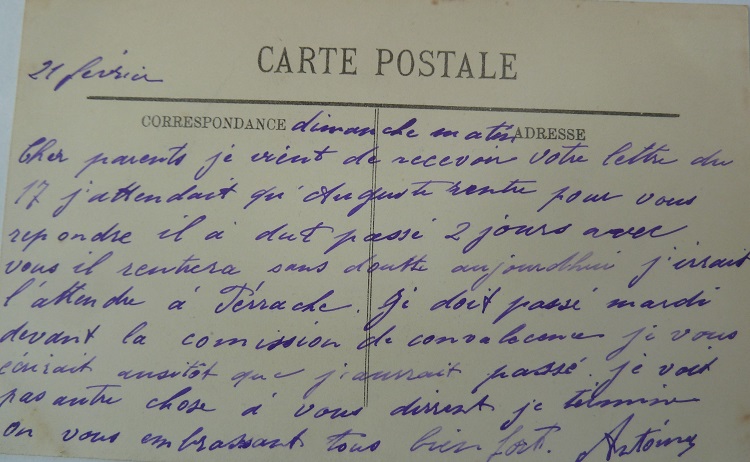 CARTE POSTALE
21 février
CORRESPONDANCE dimanche matin ADRESSE
Cher parents je vient de recevoir votre lettre du
17 j'attendait qu'Auguste rentre pour vous
repondre il a dut passé 2 jours avec
vous il rentrera sans doutte aujourdhui j'irrait
l'attendre à Pérrache. Je doit passé mardi
devant la comission de convalecence je vous
écrirait ausitôt que j'aurrait passé. je voit
pas autre chose à vous dirent je termine
en vous embrassant tous bien fort. Antoine